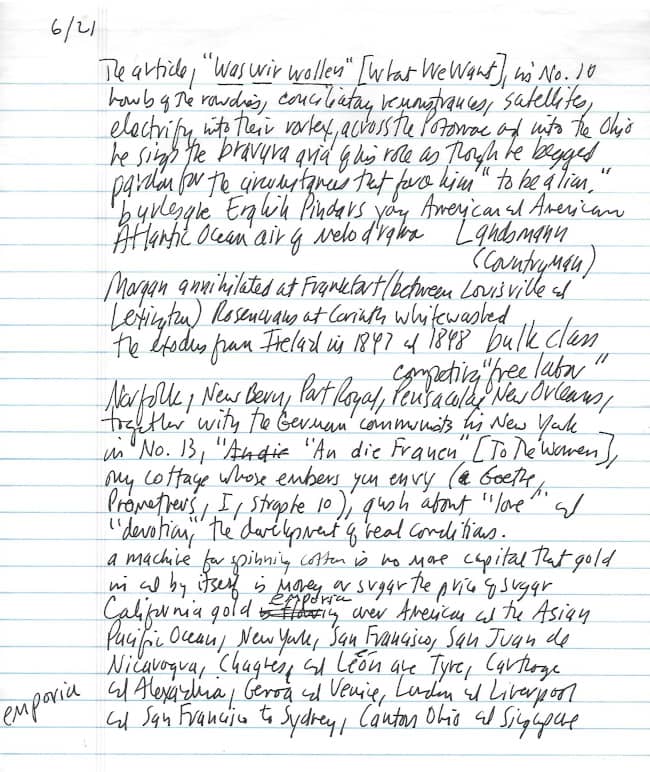 6/21
The article, "Was wir wollen" [What We Want], in No. 10
howls of the rowdies, conciliatory remonstrances, satellites,
electrify into their vortex, across the Potomac and into the Ohio
he sings the bravura aria of his role as though he begged
pardon for the circumstances that force him "to be a lion."
burlesque English Pindars you American and American
Atlantic Ocean air of melodrama Landsmann
(Countryman)
Morgan annihilated at Frankfort (between Louisville and
Lexington) Rosencrans at Corinth whitewashed
the exodus from Ireland in 1847 and 1848 bulk class
competing "free labor"
Norfolk, New Bern, Port Royal, Pensacola, New Orleans,
together with the German communists in New York
in No. 13, "An die "An die Frauen" [To The Women],
my cottage whose embers you envy (Goethe,
Prometheus, I, strophe 10), gush about "love" and
"devotion," the development of real conditions.
a machine for spinning cotton is no more capital that gold
in and by itself is money or sugar the price of sugar
emporia
California gold is flowing over American and the Asian
Pacific Ocean, New York, San Francisco, San Juan de
Nicaragua, Chagres, and León are Tyre, Carthage
and Alexandria, Genoa and Venice, London and Liverpool
emporia and San Francisco to Sydney, Canton Ohio and Singapore